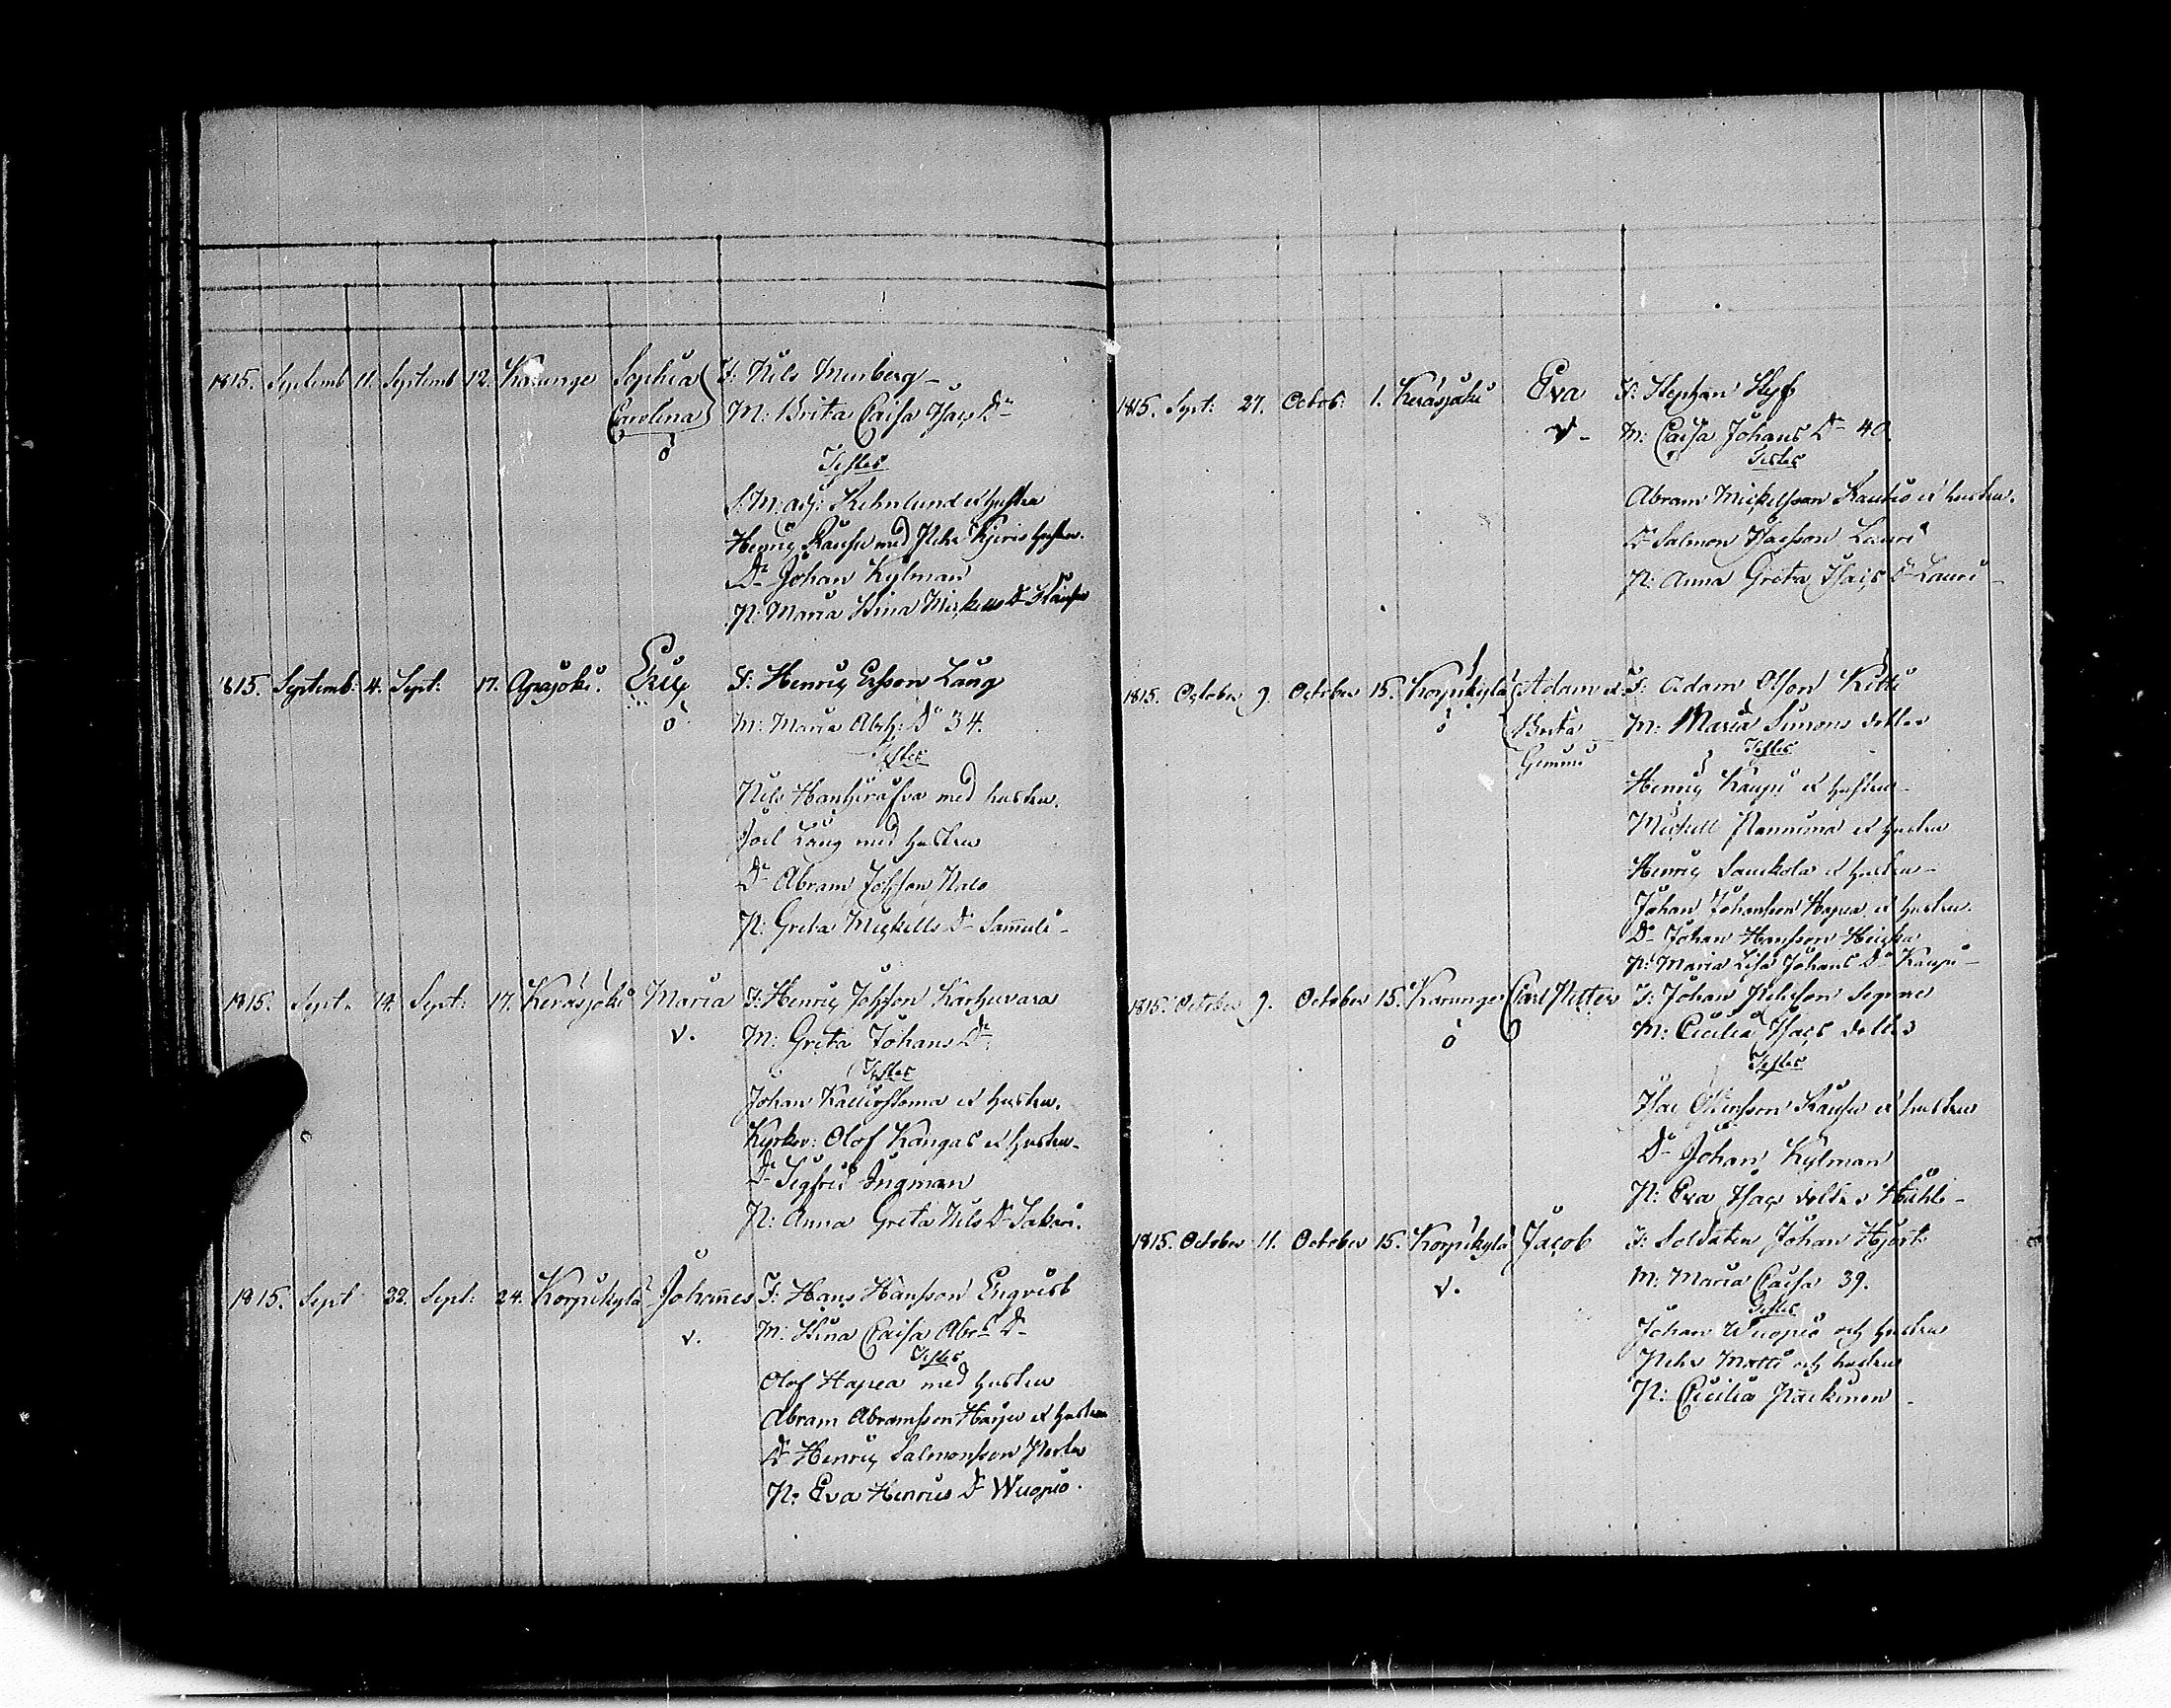 1815. Septemb 11. Septemb 12. Karunge Sophia F: Nils Murberg
Carolina M: Brita Caisa Isacs Dr
ö
Testes
S.M. adj: Rehnlund et hustru
Henric Rausu med Petr Kjeris hustru.
Dr Johan Kylman
P: Maria Stina Mickells Dr Rausu
1815. Septemb: 4. Sept: 17. Apajoki. Eric F: Henric Ersson Lang
ö M: Maria Abrh: Dr 34.
Testes
Nils Hanhirafva med hustru.
Joel Lang med hustru
Dr Abram Johsson Palo
P: Greta Mickells Dr Sam̄uli
1815. Sept. 14. Sept: 17. Kerasjoki Maria F: Henric Johsson Karhuvara
v. M: Greta Johans Dr
Testes
Johan Kallioksloma et hustru.
Kyrkov: Olof Kangas et hustru
Dr Sigfrid Ingman
P: Anna Greta Nils Dr Sakari.
1815. Sept 22. Sept: 24. Korpikylä Johan̄es F: Hans Hansson Engvist
v. M: Stina Caisa Abr: Dr
Testes
Olof Hapea med hustru
Abram Abramsson et hustru
Dr Henric Salmonsson
P: Eva Henrics Dr Wuopio.
1815. Sept: 27. Octob: 1. Kerasjoki Eva F: Stephan Styf
v M: Caisa Johans Dr 40.
Testes
Abram Mickelsson Rautio et hustru.
Dr Salmon Isacsson Lauri
P: Anna Greta Isacs Dr Lauri
1815. October 9. October 15. Korpikylä Adam et F: Adam Olsson Kitti
ö Brita M: Maria Simons dotter
Gemini Testes
Henric Kaupi et hustru
Mickell Nannima et hustru
Henric Saukola et hustru
Johan Johansson Hapea et hustru.
Dr Johan Hansson Heicka
P: Maria Lisa Johans Dr Kaupi
1815. October 9. October 15. Karunge Carl Petter F: Johan Persson
ö M: Cecilia Isacs dotter
Testes
Isac Ollinsson Rausu et hustru
Dr Johan Kylman
P: Eva Isacs dotter
1815. October 11. October 15. Korpikylä Jacob F: Soldaten Johan Hjort
v. M: Maria Caisa 39.
Testes
Johan Wuopio och hustru
Petr Matti och hustru
P: Cecilia